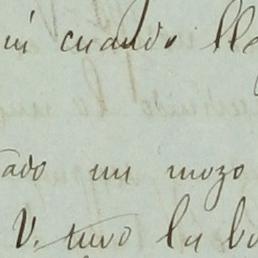 cuando lle
tado un mozo
V. tuvo la bu